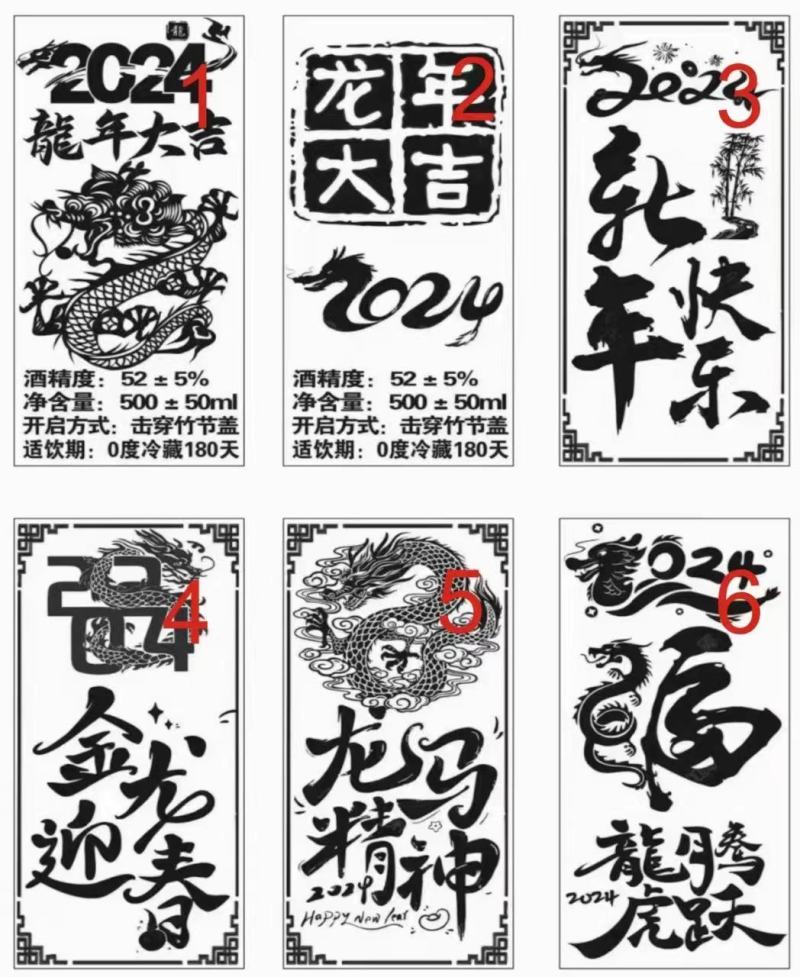 龍
2024
1
龍年大吉
酒精度：52±5%
净含量：500±50ml
开启方式：击穿竹节盖
适饮期：0度冷藏180天
龙年
2
大吉
2024
酒精度：52±5%
净含量：500±50ml
开启方式：击穿竹节盖
适饮期：0度冷藏180天
2023
3
新年
快乐
2024
4
金龙
迎春
5
龙马
精神
2024
Happy New Year
2024
6
福
龍腾
2024
虎跃